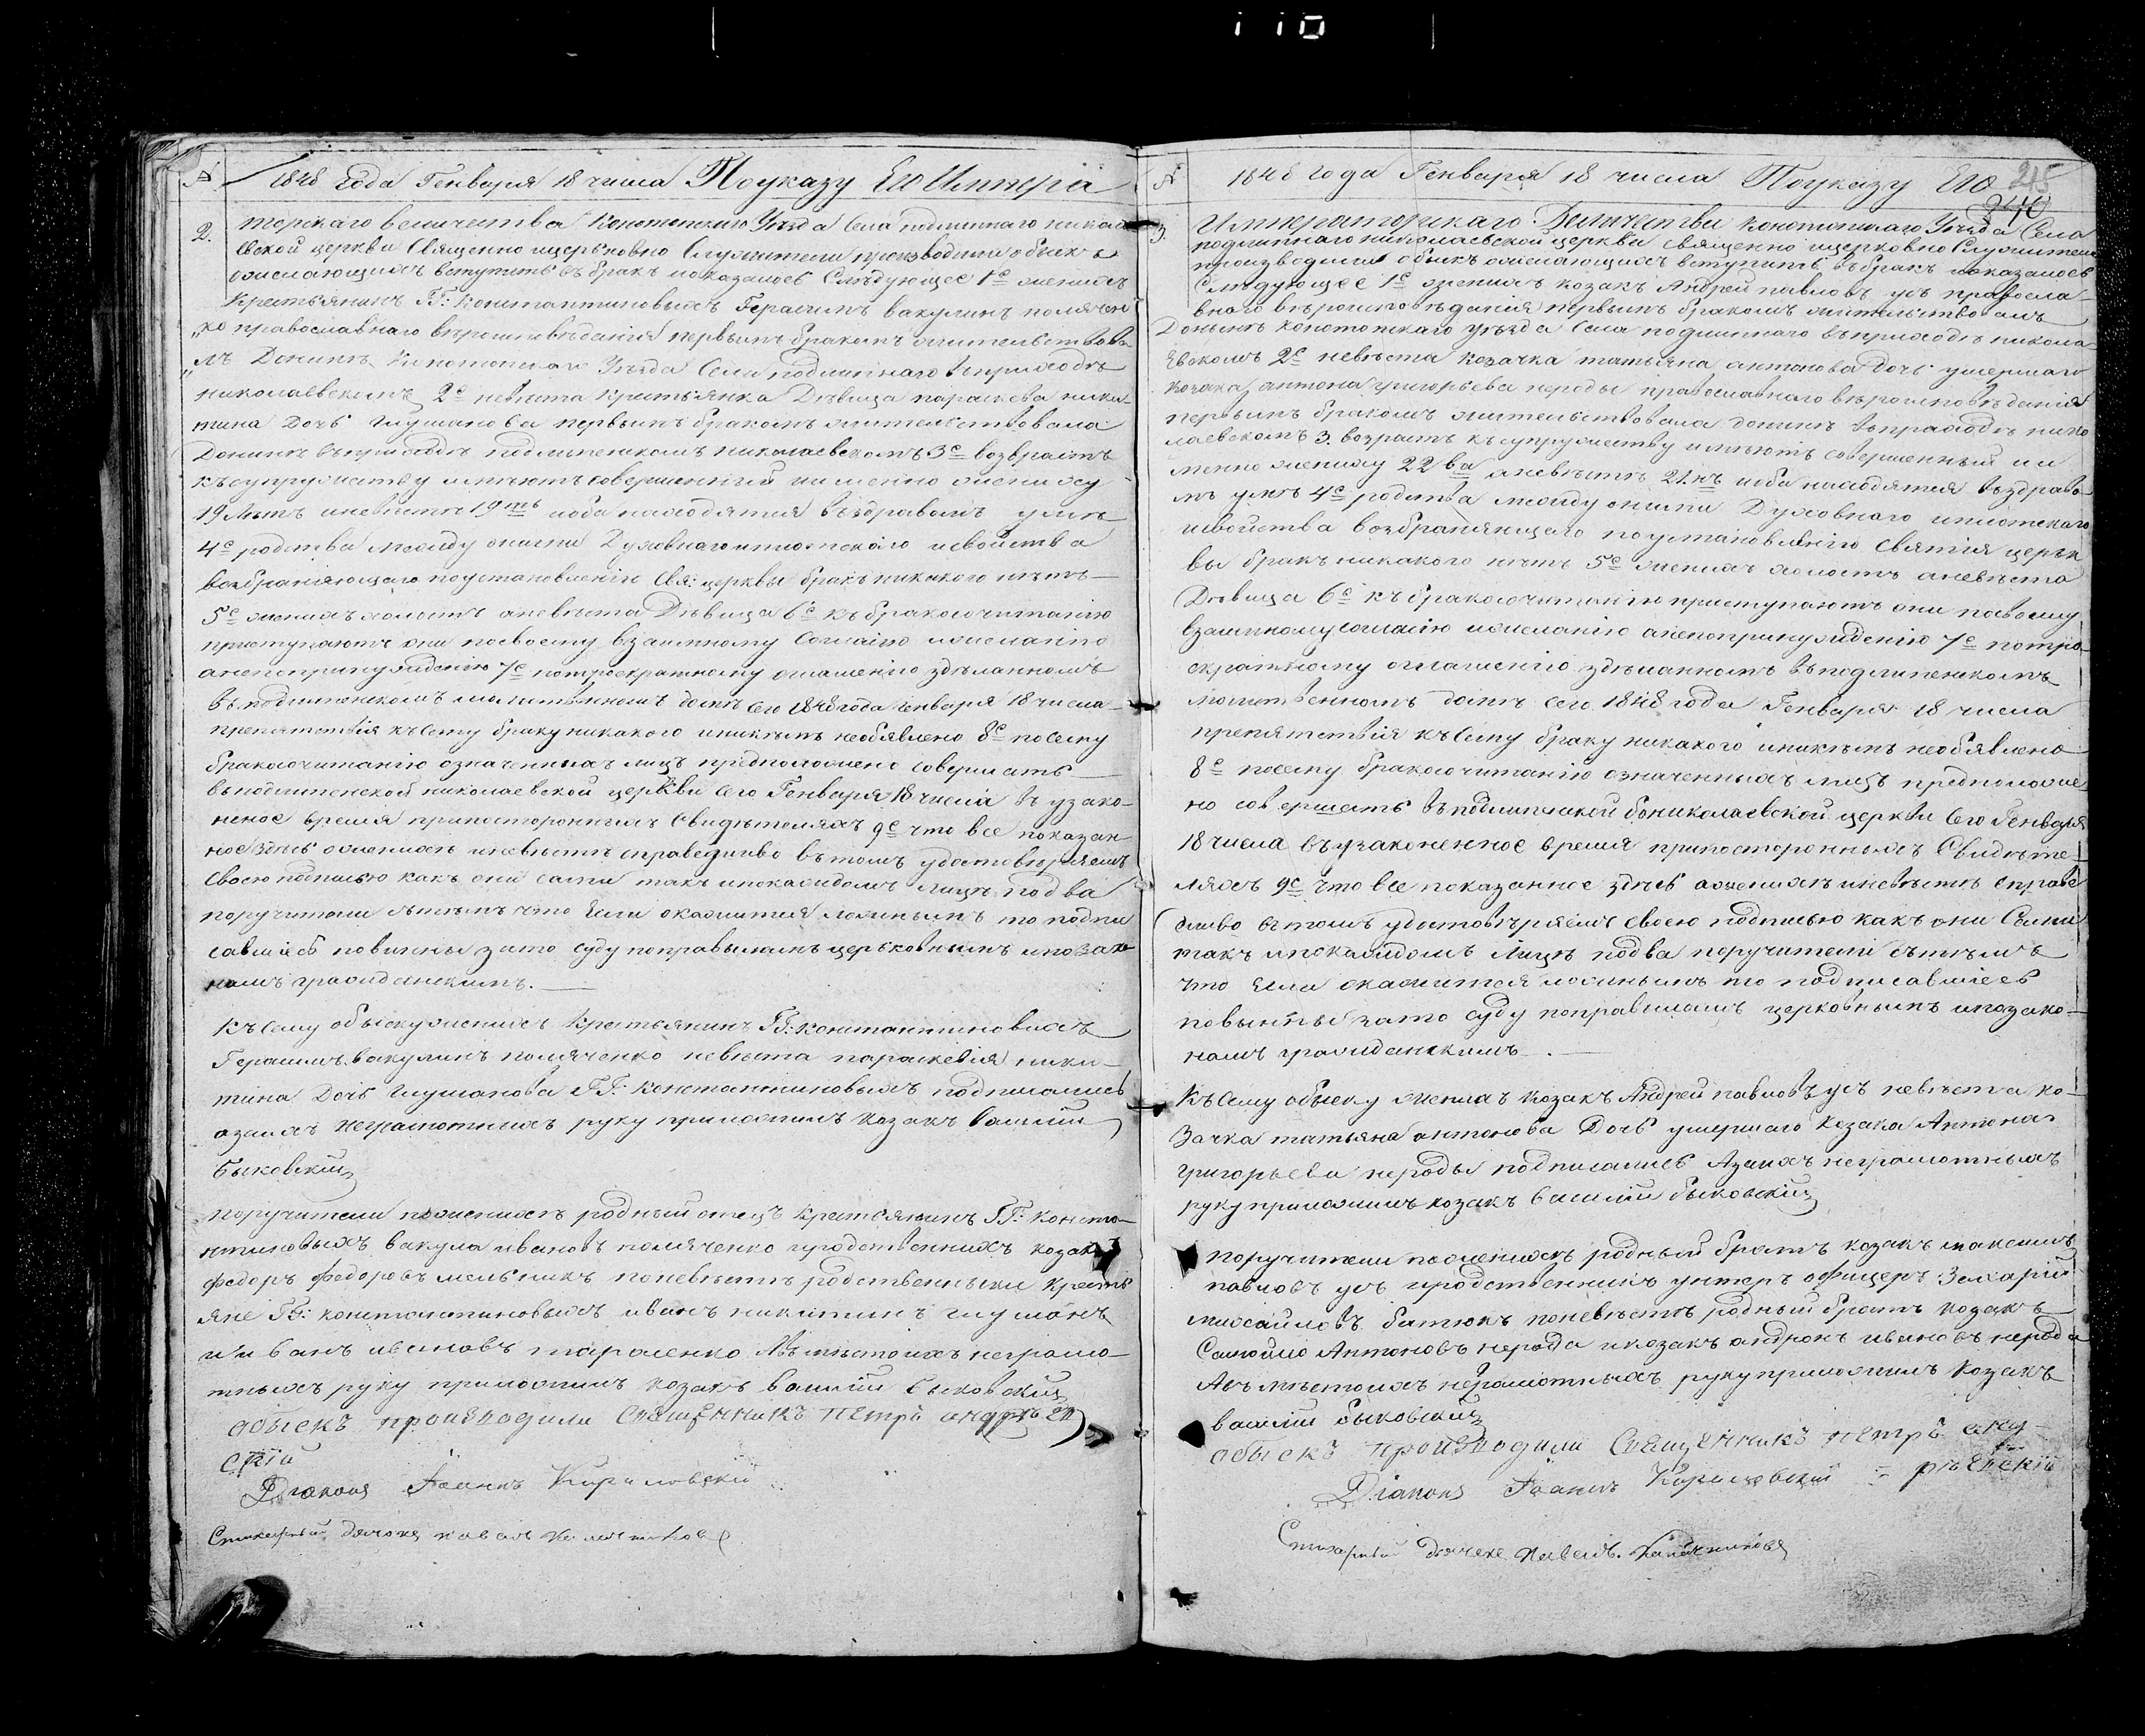 110
№ 1848 года Генваря 18 числа По указу Его Импера
2. торскаго величества Конотопскаго Уезда Села подлипнаго никола
евской церкви Священно ицерковно Служители производили обыск о
желающихъ вступить въ бракъ и оказалось Следующее 1е женихъ
Крестьянинъ ГГ: Константиновыхъ Герасимъ вакулинъ поляче
нко православнаго вероисповеданія первымъ бракомъ жительствова
лъ Доныне Конотопскаго Уезда Села подлипнаго въ приходе
николаевскимъ 2е невеста крестьянка Девица параскева ники
тина Дочь глушакова первымъ бракомъ жительствовала
Доныне въ приходе подлипенскомъ николаевскомъ 3е возврастъ
къ супружеству имеютъ совершенный именно жениху
19 летъ иневесте 19ть иоба находятся въ здравомъ уме
4е родства между оними Духовнаго иплотскаго исвойства
возбраняющаго по установленію Свя: церквы бракъ никакого нетъ
5е женихъ холостъ аневеста Девица 6е къ бракосочитанію
приступаютъ они по своему взаимному Согласію и желанію
анепопринужденію 7е потроекратному оглашенію зделанномъ
въ подлипенскомъ молитвенномъ доме сего 1848 года генваря 18 числа
препятствія къ Сему браку никакого иникемъ необявлено 8е посему
бракосочитанію означенныхъ лицъ предположено совершать
въ подлипенской николаевской церкви сего Генваря 18 числа въ узако
неное время припостороннихъ Свидетеляхъ 9е что все показан
ное здесь ожених иневесте справедливо въ томъ удостоверяемъ
Своею подписью какъ они сами такъ ипокаждомъ лице по два
поручители стемъ что Если окажится ложнымъ то подпи
савшіеся повинны зато суду поправиламъ церковнымъ ипозако
намъ гражданскимъ.
Къ Сему обыску женихъ Крестьянинъ ГГ: константиновыхъ
Герасимъ вакулинъ поляченко невеста параскевія ники
тина Дочь глушакова ГГ: Константиновыхъ подписались
азаихъ неграмотныхъ руку приложилъ козакъ василій
Быковскій
поручители поженихе родный отецъ крестьянинъ ГГ: Конста
нтиновыхъ вакула ивановъ поляченко иродственникъ козакъ
федоръ федоровъ мельникъ поневесте родственныки крестья
яне ГГ: константиновыхъ иванъ никитинъ глушакъ
и иванъ ивановъ тарасенко Авместо ихъ неграмо
тныхъ руку приложилъ козакъ василій быковскій
обыскъ производили Священникъ Петръ андрѣев
скій
Діаконъ Іоаннъ Кириловскій
Стихарный дячокъ павелъ
№ 1848 года Генваря 18 числа По указу Его 245
3. Императорскаго Величества конотопскаго Уезда Села
подлипнаго николаевской церкви священно ицерковно Служители
производили обыскъ ожелающихъ вступить въ бракъ иоказалось
Следующее 1е женихъ козакъ Андрей павловъ усъ правосла
внаго вероисповеданія первымъ бракомъ жительствовалъ
Доныне конотопскаго уезда Села подлипнаго въ приходе никола
евскомъ 2е невеста козачка татьяна антонова Дочь умершаго
козака антона григорьева нероды православнаго вероисповеданія
первымъ бракомъ жительствовала доныне въ приходе нико
лаевскомъ 3. возрастъ къ супружеству имеютъ совершенный им
менно жениху 22ва аневесте 21нъ иоба находятся въздраво
мъ уме 4е родства между оними Духовнаго иплотскаго
исвойства возбраняющаго поустановленію Святія церк
вы бракъ никакого нетъ 5е женихъ холостъ аневеста
Девица 6е къ бракосочитанію приступаютъ они посвоему
взаимному согласію ижеланію анепопринужденію 7е потро
екратному оглашенію зделанномъ въ подлипенскомъ
молитвенномъ доме сего 1848 года Генваря 18 числа
препятствія къ Сему браку никакого иникемъ необявлено
8е посему бракосочитанію означенныхъ лицъ предположе
но совершать въ подлипенской николаевской церкви сего Генваря
18 числа въ узаконенное время припостороннихъ Свидете
ляхъ 9е что все показанное здесь ожених иневесте справе
дливо втомъ удостоверяемъ своею подписью какъ они Сами
такъ ипокаждомъ Лице по два поручители стемъ
что Если окажится ложнымъ то подписавшіесь
повынны зато суду поправиламъ церковнымъ ипозако
намъ гражданскимъ.
Къ Сему обыску женихъ козакъ Андрей павловъ усъ невеста ко
зачка татьяна антонова Дочь умершаго козака Антона
григорьева нероды подписались Азаихъ неграмотныхъ
руку приложилъ козакъ василій быковскій
поручители поженихе родный братъ козакъ максимъ
павловъ усъ иродственникъ унтеръ офицеръ Захарій
михайловъ батюкъ поневесте родный братъ козакъ
Самойло Антоновъ нерода икозакъ андрей ивановъ нерода
Авместо ихъ неграмотныхъ руку приложилъ козакъ
василій быковскій
обыскъ производили Священникъ петръ анд
рѣевскій
Діаконъ Іоаннъ Кириловскій
Стихарный дячекъ павелъ